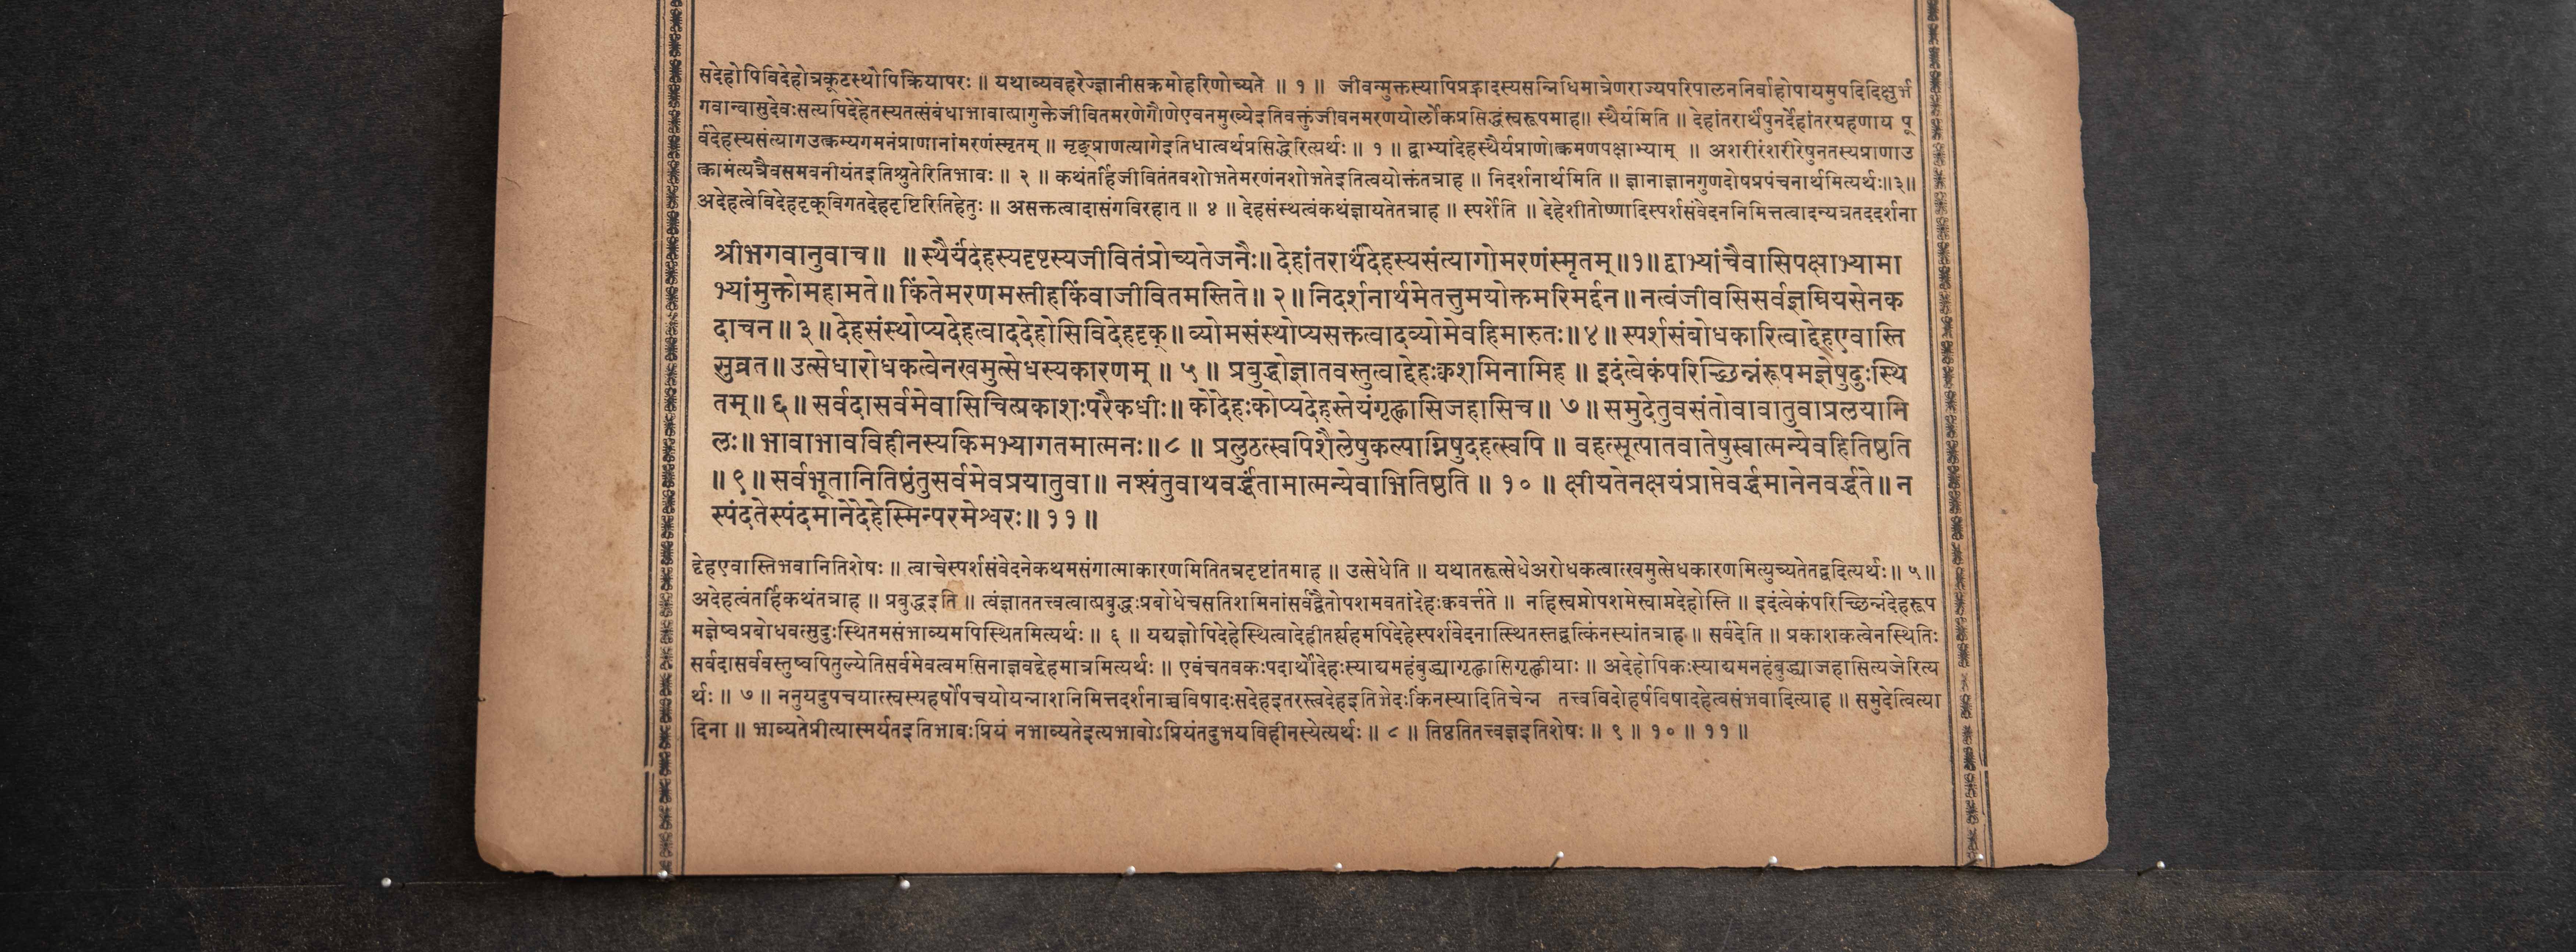 सदेहोपिविदेहोत्रकूटस्थोपिक्रियापरः ॥ यथाव्यवहरेज्ज्ञानीसक्रमोहरिणोच्यते ॥ १ ॥ जीवन्मुक्तस्यापिप्रह्लादस्यसन्निधिमात्रेणराज्यपरिपालननिर्वाहोपायमुपदिदिक्षुर्भ
गवान्वासुदेवःसत्यपिदेहेतस्यतत्संबंधाभावात्प्रागुक्तेजीवितमरणेगौणेएवनमुख्येइतिवक्तुंजीवनमरणयोर्लोकप्रसिद्धंस्वरूपमाह॥ स्थैर्यमिति ॥ देहांतरार्थंपुनर्देहांतरग्रहणाय पू
र्वदेहस्यसंत्यागउत्क्रम्यगमनंप्राणानांमरणंस्मृतम् ॥ मृङ्प्राणत्यागेइतिधात्वर्थप्रसिद्धेरित्यर्थः ॥ १ ॥ द्वाभ्यांदेहस्थैर्यप्राणोत्क्रमणपक्षाभ्याम् ॥ अशरीरंशरीरेषुनतस्यप्राणाउ
त्क्रामंत्यत्रैवसमवनीयंतइतिश्रुतेरितिभावः ॥ २ ॥ कथंतर्हिजीवितंतवशोभतेमरणंनशोभतेइतित्वयोक्तंतत्राह ॥ निदर्शनार्थमिति ॥ ज्ञानाज्ञानगुणदोषप्रपंचनार्थमित्यर्थः॥३॥
अदेहत्वेविदेहदृक्‌विगतदेहदृष्टिरितिहेतुः ॥ असक्तत्वादासंगविरहात् ॥ ४ ॥ देहसंस्थत्वंकथंज्ञायतेतत्राह ॥ स्पर्शेति ॥ देहेशीतोष्णादिस्पर्शसंवेदननिमित्तत्वादन्यत्रतददर्शना
श्रीभगवानुवाच॥ ॥ स्थैर्यंदेहस्यदृष्टस्यजीवितंप्रोच्यतेजनैः॥ देहांतरार्थंदेहस्यसंत्यागोमरणंस्मृतम्॥१॥ द्वाभ्यांचैवासिपक्षाभ्यामा
भ्यांमुक्तोमहामते॥ किंतेमरणमस्तीहकिंवाजीवितमस्तिते॥ २॥ निदर्शनार्थमेतत्तुमयोक्तमरिमर्द्दन॥ नत्वंजीवसिसर्वज्ञम्रियसेनक
दाचन॥ ३॥ देहसंस्थोप्यदेहत्वाददेहोसिविदेहदृक्॥ व्योमसंस्थोप्यसक्तत्वादव्योमेवहिमारुतः॥४॥ स्पर्शसंबोधकारित्वाद्देहएवास्ति
सुव्रत॥ उत्सेधारोधकत्वेनखमुत्सेधस्यकारणम् ॥ ५ ॥ प्रबुद्धोज्ञातवस्तुत्वाद्देहःक्वशमिनामिह ॥ इदंत्वेकंपरिच्छिन्नंरूपमज्ञेषुदुःस्थि
तम्॥ ६॥ सर्वदासर्वमेवासिचित्प्रकाशःपरैकधीः॥ कोदेहःकोप्यदेहस्तेयंगृह्णासिजहासिच॥ ७॥ समुदेतुवसंतोवावातुवाप्रलयानि
लः॥ भावाभावविहीनस्यकिमभ्यागतमात्मनः॥८ ॥ प्रलुठत्स्वपिशैलेषुकल्पाग्निषुदहत्स्वपि ॥ वहत्सूत्पातवातेषुस्वात्मन्येवहितिष्ठति
॥ ९॥ सर्वभूतानितिष्ठंतुसर्वमेवप्रयातुवा॥ नश्यंतुवाथवर्द्धंतामात्मन्येवाभितिष्ठति ॥ १० ॥ क्षीयतेनक्षयंप्राप्तेवर्द्धमानेनवर्द्धते॥ न
स्पंदतेस्पंदमानेदेहेस्मिन्परमेश्वरः॥ ११॥
द्देहएवास्तिभवानितिशेषः ॥ त्वाचेस्पर्शसंवेदनेकथमसंगात्माकारणमितितत्रदृष्टांतमाह ॥ उत्सेधेति ॥ यथातरूत्सेधेअरोधकत्वात्खमुत्सेधकारणमित्युच्यतेतद्वदित्यर्थः॥ ५॥
अदेहत्वंतर्हिकथंतत्राह ॥ प्रबुद्धइति ॥ त्वंज्ञाततत्त्वत्वात्प्रबुद्धःप्रबोधेचसतिशमिनांसर्वद्वैतोपशमवतांदेहःक्ववर्त्तते ॥ नहिस्वप्नोपशमेस्वाप्नदेहोस्ति ॥ इदंत्वेकंपरिच्छिन्नंदेहरूप
मज्ञेष्वप्रबोधवत्सुदुःस्थितमसंभाव्यमपिस्थितमित्यर्थः ॥ ६ ॥ यद्यज्ञोपिदेहेस्थित्वादेहीतर्ह्यहमपिदेहेस्पर्शवेदनात्स्थितस्तद्वत्किंनस्यांतत्राह ॥ सर्वदेति ॥ प्रकाशकत्वेनस्थितिः
सर्वदासर्ववस्तुष्वपितुल्येतिसर्वमेवत्वमसिनाज्ञवद्देहमात्रमित्यर्थः ॥ एवंचतवकःपदार्थोदेहःस्याद्यमहंबुद्ध्यागृह्णासिगृह्णीयाः ॥ अदेहोपिकःस्याद्यमनहंबुद्ध्याजहासित्यजेरित्य
र्थः ॥ ७ ॥ ननुयदुपचयात्स्वस्यहर्षोपचयोयन्नाशनिमित्तदर्शनाच्चविषादःसदेहइतरस्त्वदेहइतिभेदःकिंनस्यादितिचेन्न तत्त्वविदोहर्षविषादहेत्वसंभवादित्याह ॥ समुदेत्वित्या
दिना ॥ भाव्यतेप्रीत्यास्मर्यतइतिभावःप्रियं नभाव्यतेइत्यभावोऽप्रियंतदुभयविहीनस्येत्यर्थः ॥ ८ ॥ तिष्ठतितत्त्वज्ञइतिशेषः ॥ ९ ॥ १० ॥ ११ ॥